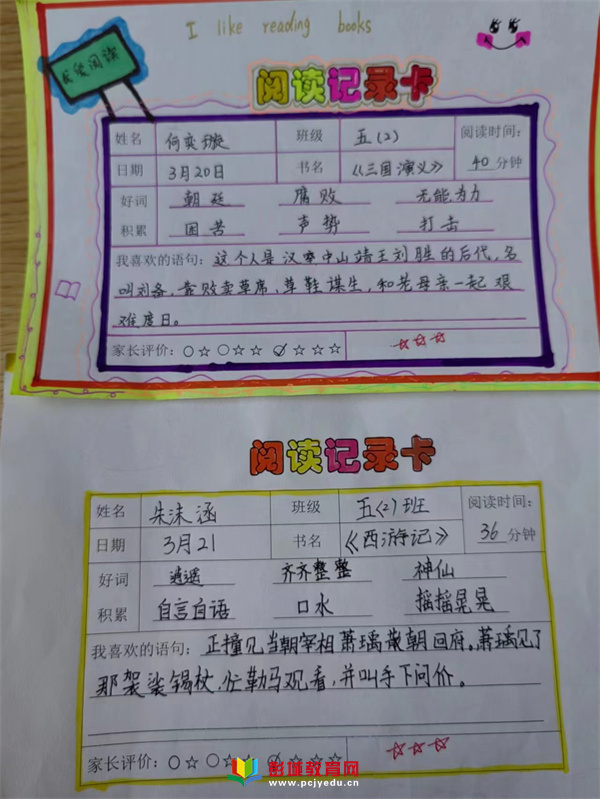 I like reading books
我爱阅读
阅读记录卡
姓名 何奕璇 班级 五(2) 阅读时间:
日期 3月20日 书名 《三国演义》 40 分钟
好词 朝廷 腐败 无能为力
积累 困苦 声势 打击
我喜欢的语句: 这个人是汉室中山靖王刘胜的后代,名
叫刘备,靠贩卖草席,草鞋谋生,和老母亲一起艰
难度日。
家长评价: ○☆ ○☆☆ ✓☆☆☆ ☆☆☆
阅读记录卡
姓名 朱沫涵 班级 五(2)班 阅读时间:
日期 3月21 书名 《西游记》 36 分钟
好词 逍遥 齐齐整整 神仙
积累 自言自语 口水 摇摇晃晃
我喜欢的语句: 正撞见当朝宰相萧瑀散朝回府。萧瑀见了
那袈裟锡杖,忙勒马观看,并叫手下问价。
家长评价: ○☆ ○☆☆ ✓☆☆☆ ☆☆☆
彭城教育网
www.pcjyedu.cn